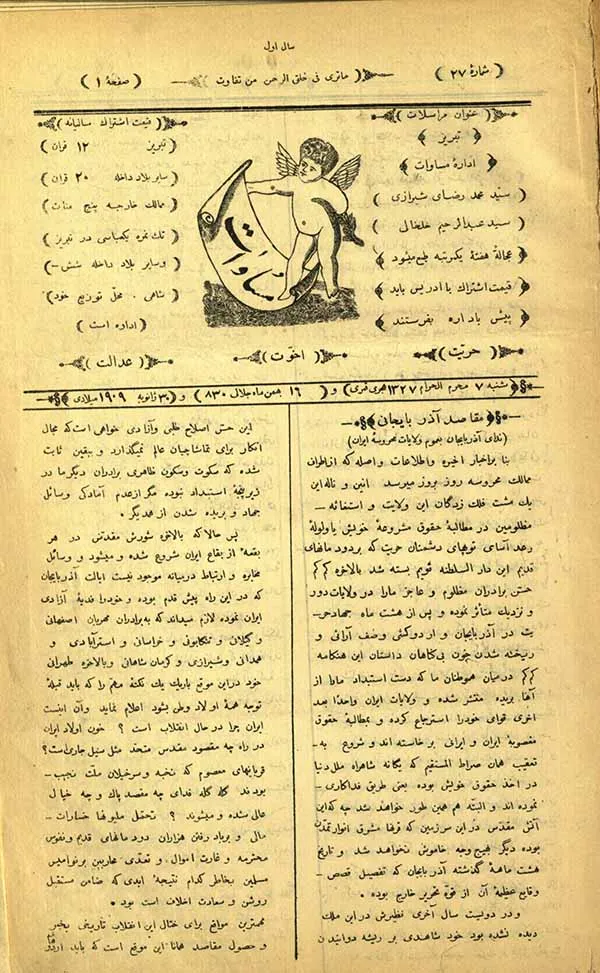 سال اول
( شمارهٔ ۲۷ )
ماتری فی خلق الرحمن من تفاوت
( صفحهٔ ۱ )
( عنوان مراسلات )
( تبریز )
( ادارهٔ مساوات )
( سیّد محمد رضای شیرازی )
( سید عبدالرحیم خلخالی )
( عجالةً هفتهٔ یکرتبه طبع میشود )
( قیمت اشتراک با ادریس باید )
( پیش باداره بفرستند )
مساوات
( قیمت اشتراک سالیانه )
( تبریز ۱۲ قران )
( سایر بلاد داخله ۲۰ قران )
( ممالک خارجه پنج منات )
( تک نمره یکعباسی در تبریز )
( وسایر بلاد داخله شش - )
( شاهی . محلّ توزیع خود )
( اداره است )
( حرّیّت )
( اخوّت )
( عدالت )
( شنبه ۷ محرم الحرام ۱۳۲۷ هجری قمری ) و ( ۱۶ بهمن ماه جلالی ۸۳۰ ) و ( ۳۰ ژانویه ۱۹۰۹ میلادی )
( مقاصد آذربایجانی )
( ندای آذربایجان بعموم ولایات محروسهٔ ایران )
بنا براخبار اخیره و اطلاعات واصله که ازاطراف
ممالک محروسه روز بروز میرسد انین و ناله این
یک مشت فلک زدگان این ولایت و استغاثه -
مظلومین در مطالبهٔ حقوق مشروعهٔ خویش باولولهٔ
رعد آسای توپهای دشمنان حریت که بردودمانهای
قدیم این دار السلطنه قویم بسته شد بالاخره کم کم
حس برادران مظلوم و عاجز مارا در ولایات دور
و نزدیک متأثر نموده و پس از هشت ماه جهادحر-
یت در آذربایجان و اردوکشی وصف آرائی و
ریخته شدن خون بی‌گناهان داستان این هنگامه
کم کم درمیان هموطنان ما که دست استبداد مارا از
آنها بریده منتشر شده و ولایات ایران واحداً بعد
اخری قوای خودرا استرجاع کرده و بمطالبهٔ حقوق
مغصوبهٔ ایران و ایرانی بر خاسته اند و شروع به-
تعقیب همان صراط المستقیم که یگانه شاهراه ملل دنیا
در اخذ حقوق خویش بوده یعنی طریق فداکاری -
نموده اند و البته هم همین طور خواهد شد چه که این
آتش مقدّس در این سرزمین که قرنها مشرق انوار تمدّن
بوده دیگر بهیچ وجه خاموش نخواهد شد و تاریخ
هشت ماههٔ گذشته آذربایجان که تفصیل قصص -
وقایع عظیمهٔ آن از قوّهٔ تحریر خارج بوده .
و در دویست سال آخری نظیرش در این ملک
دیده نشده بود خود شاهدی بر ریشه دوانیدن
این حس اصلاح طلبی وآزادی خواهی است‌که مجال
انکار برای تماشاچیان عالم نمیگذارد و بیقین ثابت
شده که سکوت وسکون ظاهری برادران دیگر ما در
زیرپنجهٔ استبداد نبوده مگر ازعدم آمادگی وسائل
جهاد و بریده شدن از همدیگر .
پس حالا که بالاخره شورش مقدّس در هر
بقعهٔ از بقاع ایران شروع شده و میشود و وسائل
مخابره و ارتباط درمیانه موجود نیست ایالت آذربایجان
که در این راه پیش قدم بوده و خودرا فدیهٔ آزادی
ایران نموده لازم میداند که به‌برادران مهربان اصفهانی
و گیلانی و تنکابونی و خراسانی و استرآبادی و
همدانی وشیرازی و کرمان شاهانی وبالاخره طهرانی
خود دراین موقع باریک یک نکتهٔ مهمّ را که باید قبلهٔ
توجه همهٔ اولاد وطن بشود اعلام نماید وآن اینست
ایران چرا در حال انقلاب است ؟ خون اولاد ایران
در راه چه مقصود مقدس متحد مثل سیل جاری است؟
قربانیهای معصوم که نخبه و سرخیلان ملّت نجیب-
بودند گله گله فدای چه مقصد پاک و چه خیال
عالی شده و میشوند ؟ تحمّل ملیونها خسارات -
مالی و برباد رفتن هزاران دودمانهای قدیم ونفوس
محترمه و غارت اموال و تعدّی محاربین برنوامیس
مسلمین بخاطر کدام نتیجهٔ ابدی که ضامن مستقبل
روشن و سعادت اخلاف است بود .
مهمترین مواقع برای ختام این انقلاب تاریخی بخیر
و حصول مقاصد همانا این موقع است که باید